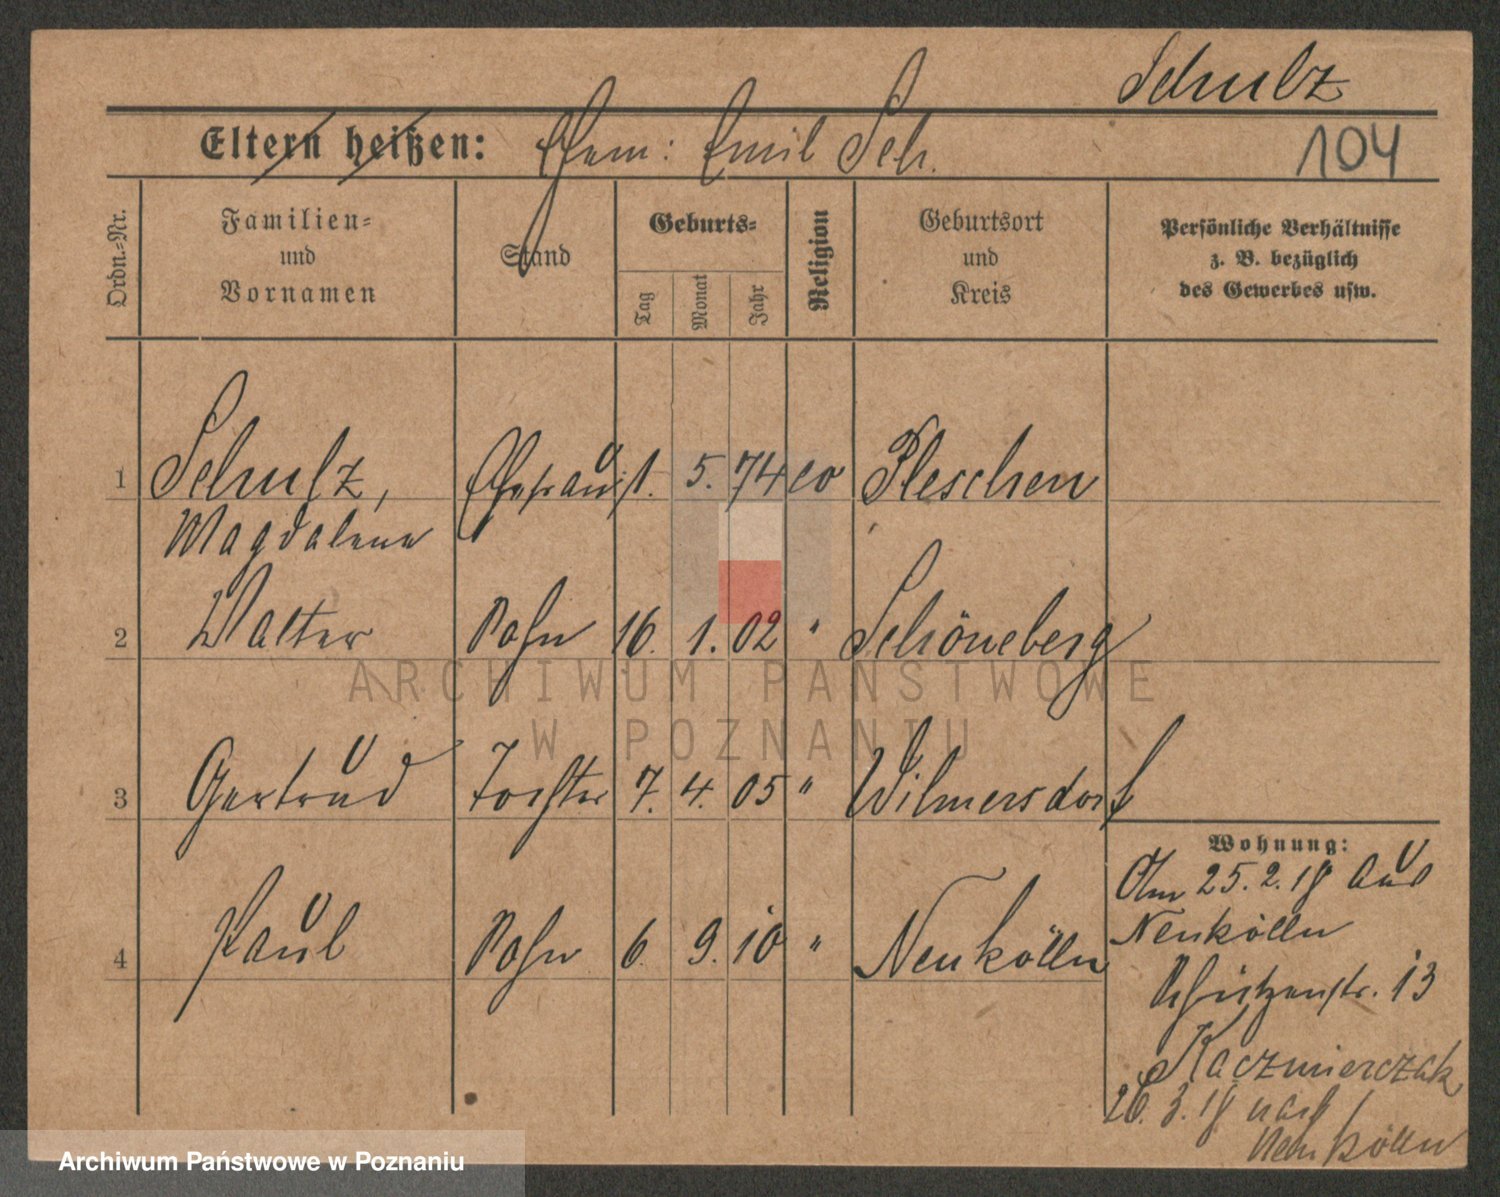 Schulz
Eltern heißen: Ehem: Emil Sch.
104
Ordn.-Nr.
Familien-
und
Vornamen
Stand
Geburts-
Tag
Monat
Jahr
Religion
Geburtsort
und
Kreis
Persönliche Verhältnisse
z. B. bezüglich
des Gewerbes usw.
1 Schulz, Ehefrau 1. 5. 74 ev Pleschen
Magdalene
2 Walter Sohn 16. 1. 02 " Schöneberg
3 Gertrud Tochter 7. 4. 05 " Wilmersdorf
4 Paul Sohn 6. 9. 10 " Neukölln
Wohnung:
Am 25.2.18 aus
Neukölln
Schützenstr. 13
Kaczmierczak
26.3.18 nach
Neukölln
ARCHIWUM PAŃSTWOWE
W POZNANIU
Archiwum Państwowe w Poznaniu